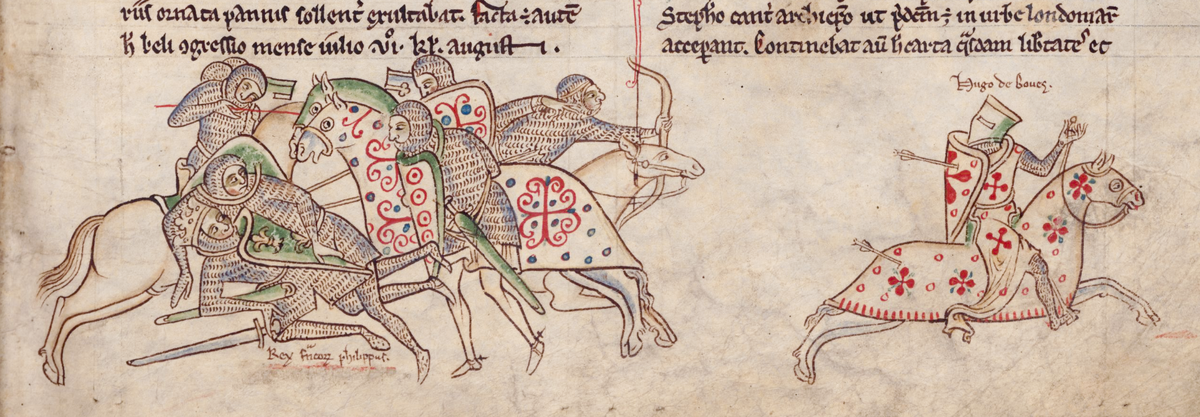 riis ornata pannis sollent̄ exultabat. Facta ÷ autē
h̄ beli ꝯgressio mense iulio .vi. kł. augusti.
Stepħo cant̄ archiep̄o ut p̄dc̄m ÷ in urbe londoniar̄
acceꝑant. Continebat aū h̄ carta q̄sdam lib̄tates et
Hugo de boues.
Rex francoꝝ philippus.